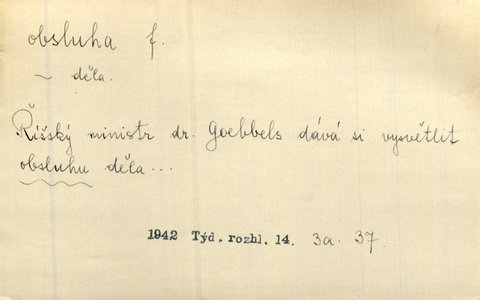 obsluha f.
~ děla.
Říšský ministr dr. Goebbels dává si vysvětlit
obsluhu děla...
1942 Týd. rozhl. 14. 3a. 37.